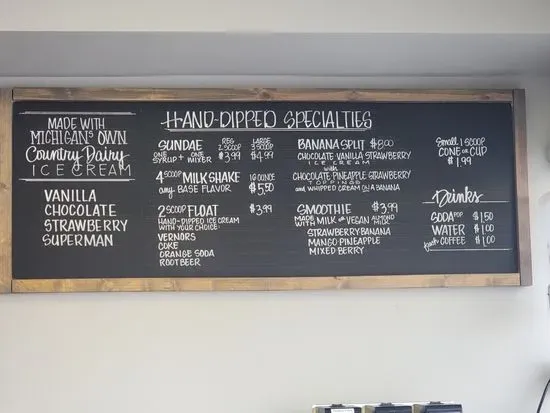 MADE WITH
MICHIGAN'S OWN
Country Dairy
ICE CREAM
VANILLA
CHOCOLATE
STRAWBERRY
SUPERMAN
HAND-DIPPED SPECIALTIES
SUNDAE REG 2 SCOOP LARGE 3 SCOOP
ONE SYRUP + ONE MIXER $3.99 $4.99
4 SCOOP MILKSHAKE 16 OUNCE
any BASE FLAVOR $5.50
2 SCOOP FLOAT $3.99
HAND-DIPPED ICE CREAM
WITH YOUR CHOICE:
VERNORS
COKE
ORANGE SODA
ROOT BEER
BANANA SPLIT $8.00
CHOCOLATE VANILLA STRAWBERRY
ICE CREAM
with
CHOCOLATE PINEAPPLE STRAWBERRY
TOPPINGS
AND WHIPPED CREAM ON A BANANA
SMOOTHIE $3.99
MADE WITH MILK OR VEGAN ALMOND MILK
STRAWBERRY BANANA
MANGO PINEAPPLE
MIXED BERRY
Small 1 SCOOP
CONE OR CUP
$1.99
Drinks
SODA POP $1.50
WATER $1.00
fresh COFFEE $1.00